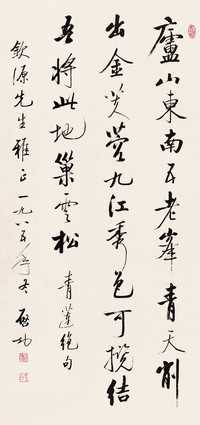 廬山東南五老峯青天削
出金芙蓉九江秀色可攬結
吾將此地巢雲松 青蓮絕句
欽源先生雅正一九八五年冬 啟功